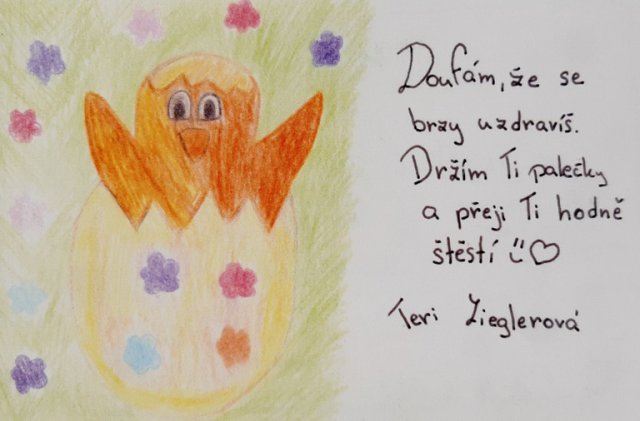 Doufám, že se
brzy uzdravíš.
Držím Ti palečky
a přeji Ti hodně
štěstí ü♡
Teri Zieglerová